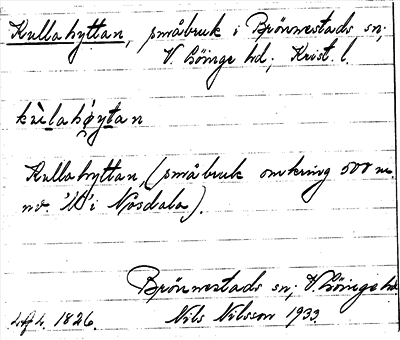 Kullahyttan, småbruk i Brönnestads sn;
V. Göinge hd; Krist. l.
kùlahy̨tan
Kullahyttan, (småbruk omkring 500 m.
nv. "N" i Näsdala).
Brönnestads sn; V. Göinge hd
Nils Nilsson 1933
1826.